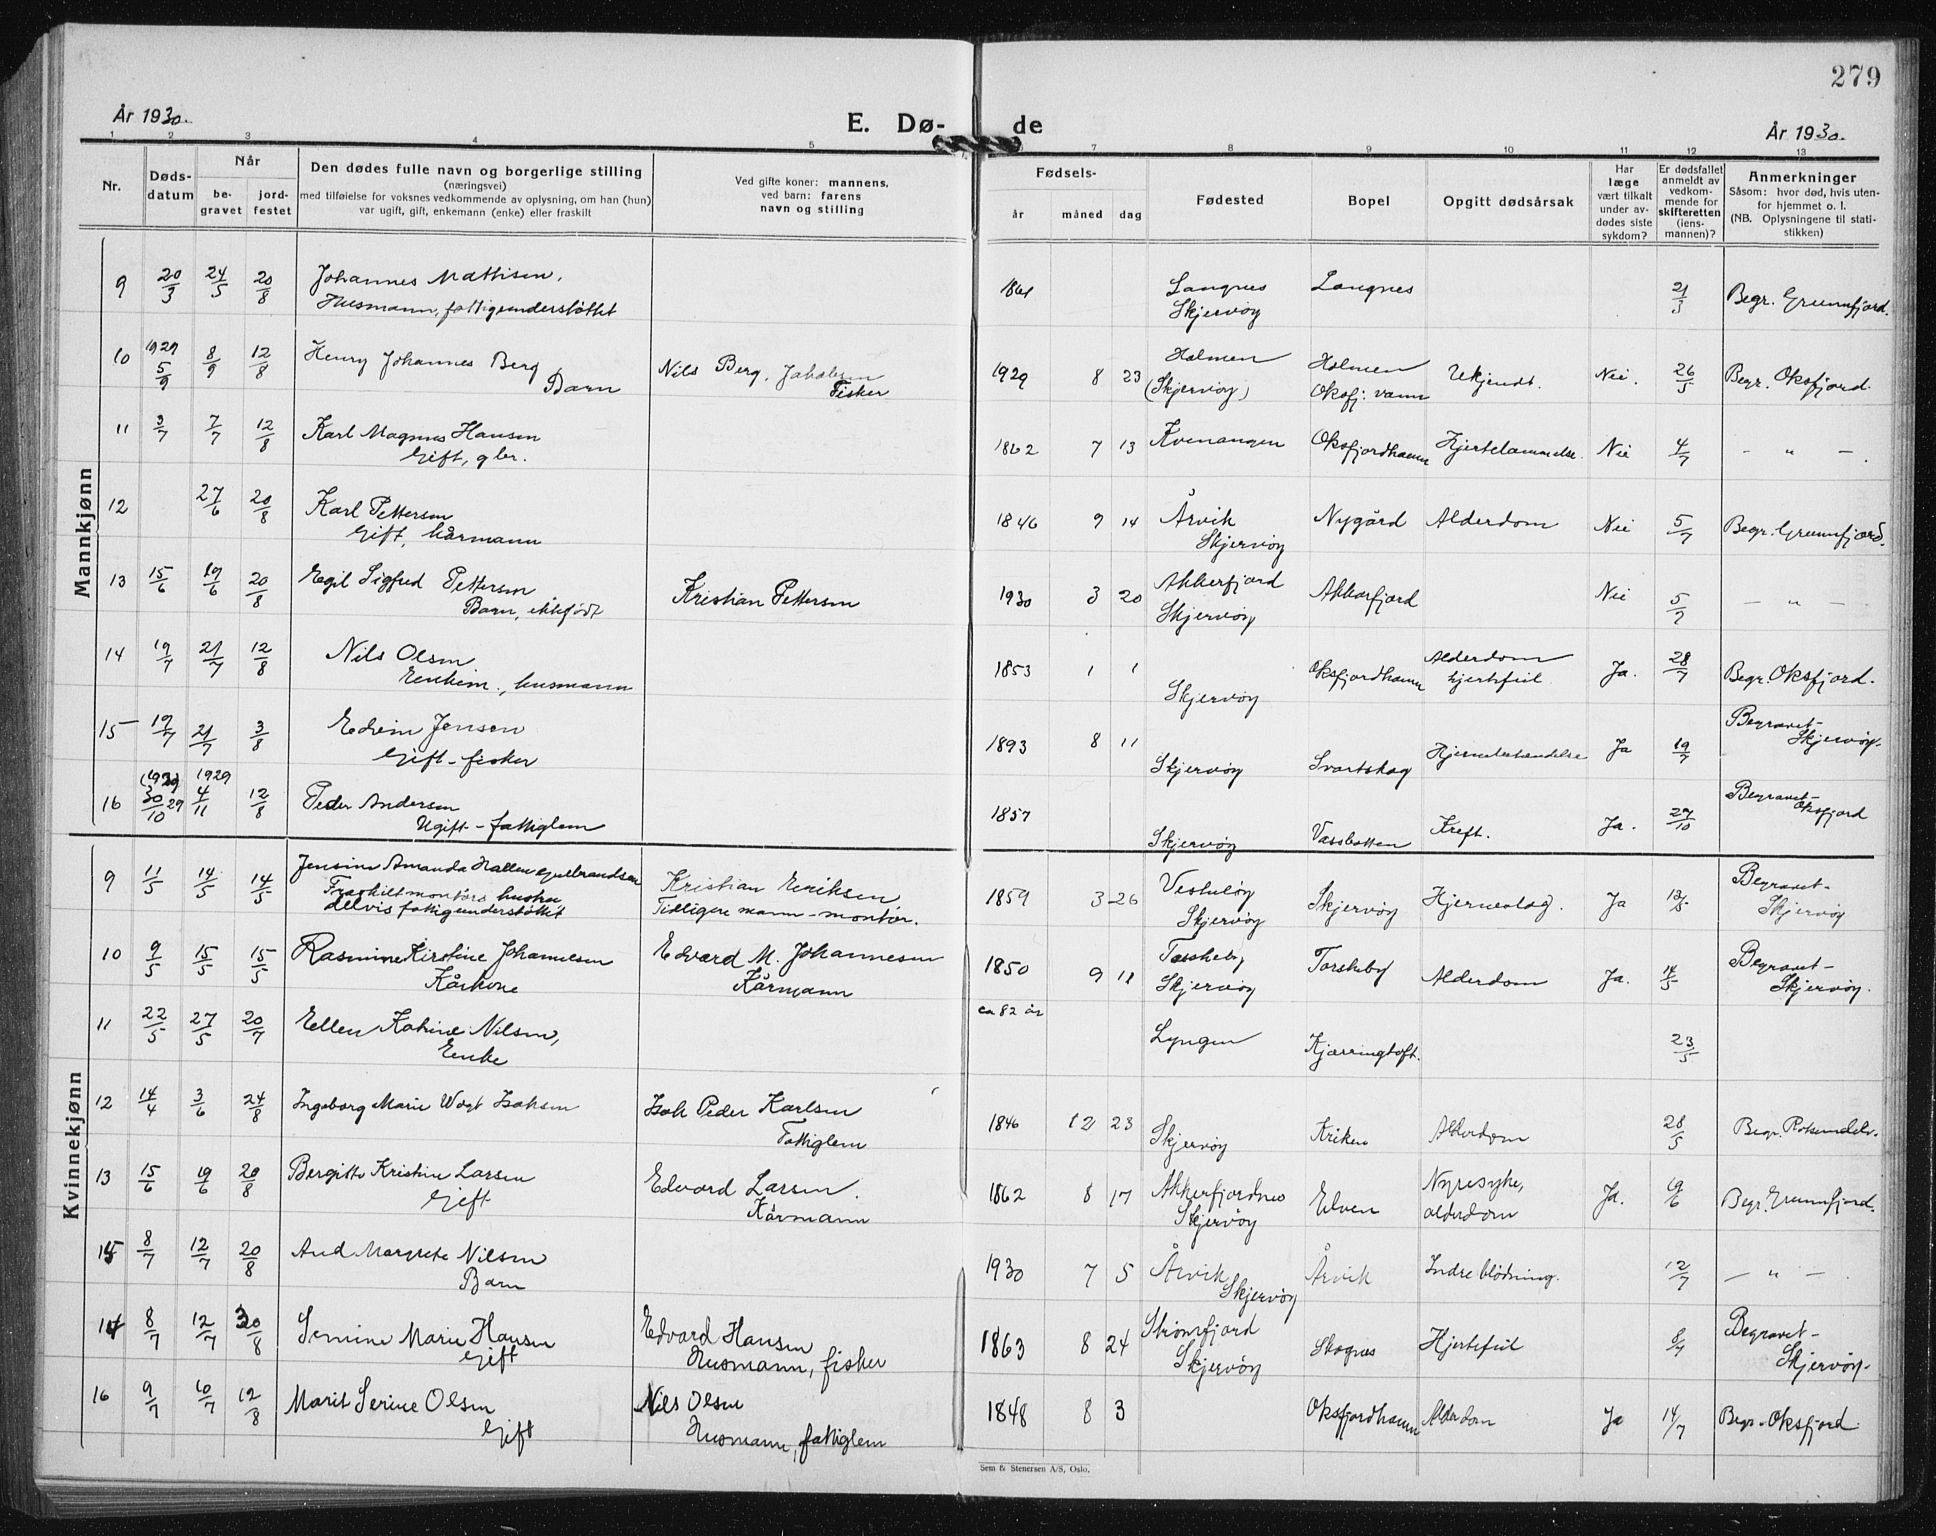 279
År 1930.
E. Dø-
de
År 1930.
1 2 3 4 5 7 8 9 10 11 12 13
Nr.
Døds-
datum
Når
be-
gravet
jord-
festet
Den dødes fulle navn og borgerlige stilling
(næringsvei)
med tilføielse for voksnes vedkommende av oplysning, om han (hun)
var ugift, gift, enkemann (enke) eller fraskilt
Ved gifte koner: mannens,
ved barn: farens
navn og stilling
Fødsels-
år
måned
dag
Fødested
Bopel
Opgitt dødsårsak
Har
læge
vært tilkalt
under av-
dødes siste
sykdom?
Er dødsfallet
anmeldt av
vedkom-
mende for
skifteretten
(lens-
mannen)?
Anmerkninger
Såsom: hvor død, hvis uten-
for hjemmet o. l.
(NB. Oplysningene til stati-
stikken)
Mannkjønn
9 20/3 24/5 20/8 Johannes Mattisen, 1861 Langnes Langnes 21/3 Begr. Grunnfjord.
Husmann, fattigunderstøttet Skjervøy
10 1929 5/9 8/9 12/8 Henry Johannes Berg Nils Berg, Jakobsen 1929 8 23 Holmen Holmen Ukjendt. Nei. 26/5 Begr. Oksfjord.
Barn Fisker (Skjervøy) Oksfj: vann
11 3/7 7/7 12/8 Karl Magnus Hansen 1862 7 13 Kvenangen Oksfjordhamn Hjertelammelse. Nei 4/7 – " – .
Gift, gbr.
12 27/6 20/8 Karl Pettersen 1846 9 14 Årvik Nygård Alderdom Nei 5/7 Begr. Grunnfjord.
Gift, kårmann Skjervøy
13 15/6 19/6 20/8 Egil Sigfred Pettersen Kristian Pettersen 1930 3 20 Akkerfjord Akkarfjord Nei 5/7 – " –
Barn, Skjervøy
14 19/7 21/7 12/8 Nils Olsen 1853 1 1 Skjervøy Oksfjordhamn Alderdom Ja. 28/7 Begr. Oksfjord.
Enkem., husmann hjertefeil.
15 19/7 21/7 3/8 Edvin Jensen 1893 8 11 Skjervøy Svartskog Ja 19/7 Begravet-
Gift - fisker Skjervøy.
16 30/10 29 1929 4/11 12/8 Peder Andersen 1857 Skjervøy Vassbotten Kreft. Ja. 27/10 Begravet-
Ugift - fattiglem Oksfjord
Kvinnekjønn
9 11/5 14/5 14/5 Jensine Amanda Kristian Eriksen 1859 3-26 Skjervøy Hjerneslag. Ja 13/5 Begravet-
Fraskilt montørs hustru Tidligere mann - montør. Skjervøy Skjervøy
delvis fattigunderstøttet
10 9/5 15/5 15/5 Rasmine Kirstine Johannesen Edvard M. Johannesen 1850 9 11 Torskeby Torskeby Alderdom Ja. 14/5 Begravet-
Kårkone Kårmann Skjervøy Skjervøy.
11 22/5 27/5 20/7 Ellen Katrine Nilsen, ca 82 år Lyngen Kjærringtoft. 23/5
Enke
12 14/4 3/6 24/8 Ingeborg Marie Wogt Isaksen Isak Peder Karlsen 1846 12 23 Skjervøy Kriken Alderdom 28/5 Begr. Rotsundelv.
Fattiglem
13 15/6 19/6 20/8 Bergitte Kristine Larsen Edvard Larsen. 1862 8 17 Akkerfjordnes Elven Nyresyke, Ja. 19/6 Begr. Grunnfjord.
Gift Kårmann Skjervøy alderdom
15 8/7 12/7 20/8 Aud Margrete Nilsen 1930 7 5 Årvik Årvik Indre blödning. 12/7 – " – .
Barn Skjervøy
14 8/7 12/7 20/8 Semine Marie Hansen Edvard Hansen 1863 8 24 Strömfjord Skognes Hjertefeil 8/7 Begravet-
Gift Husmann, fisker Skjervøy Skjervøy.
16 9/7 10/7 12/8 Marit Serine Olsen Nils Olsen 1848 8 3 Oksfjordhamn Alderdom Ja 14/7 Begr. Oksfjord.
Gift Husmann, fattiglem
Sem & Stenersen A/S, Oslo.